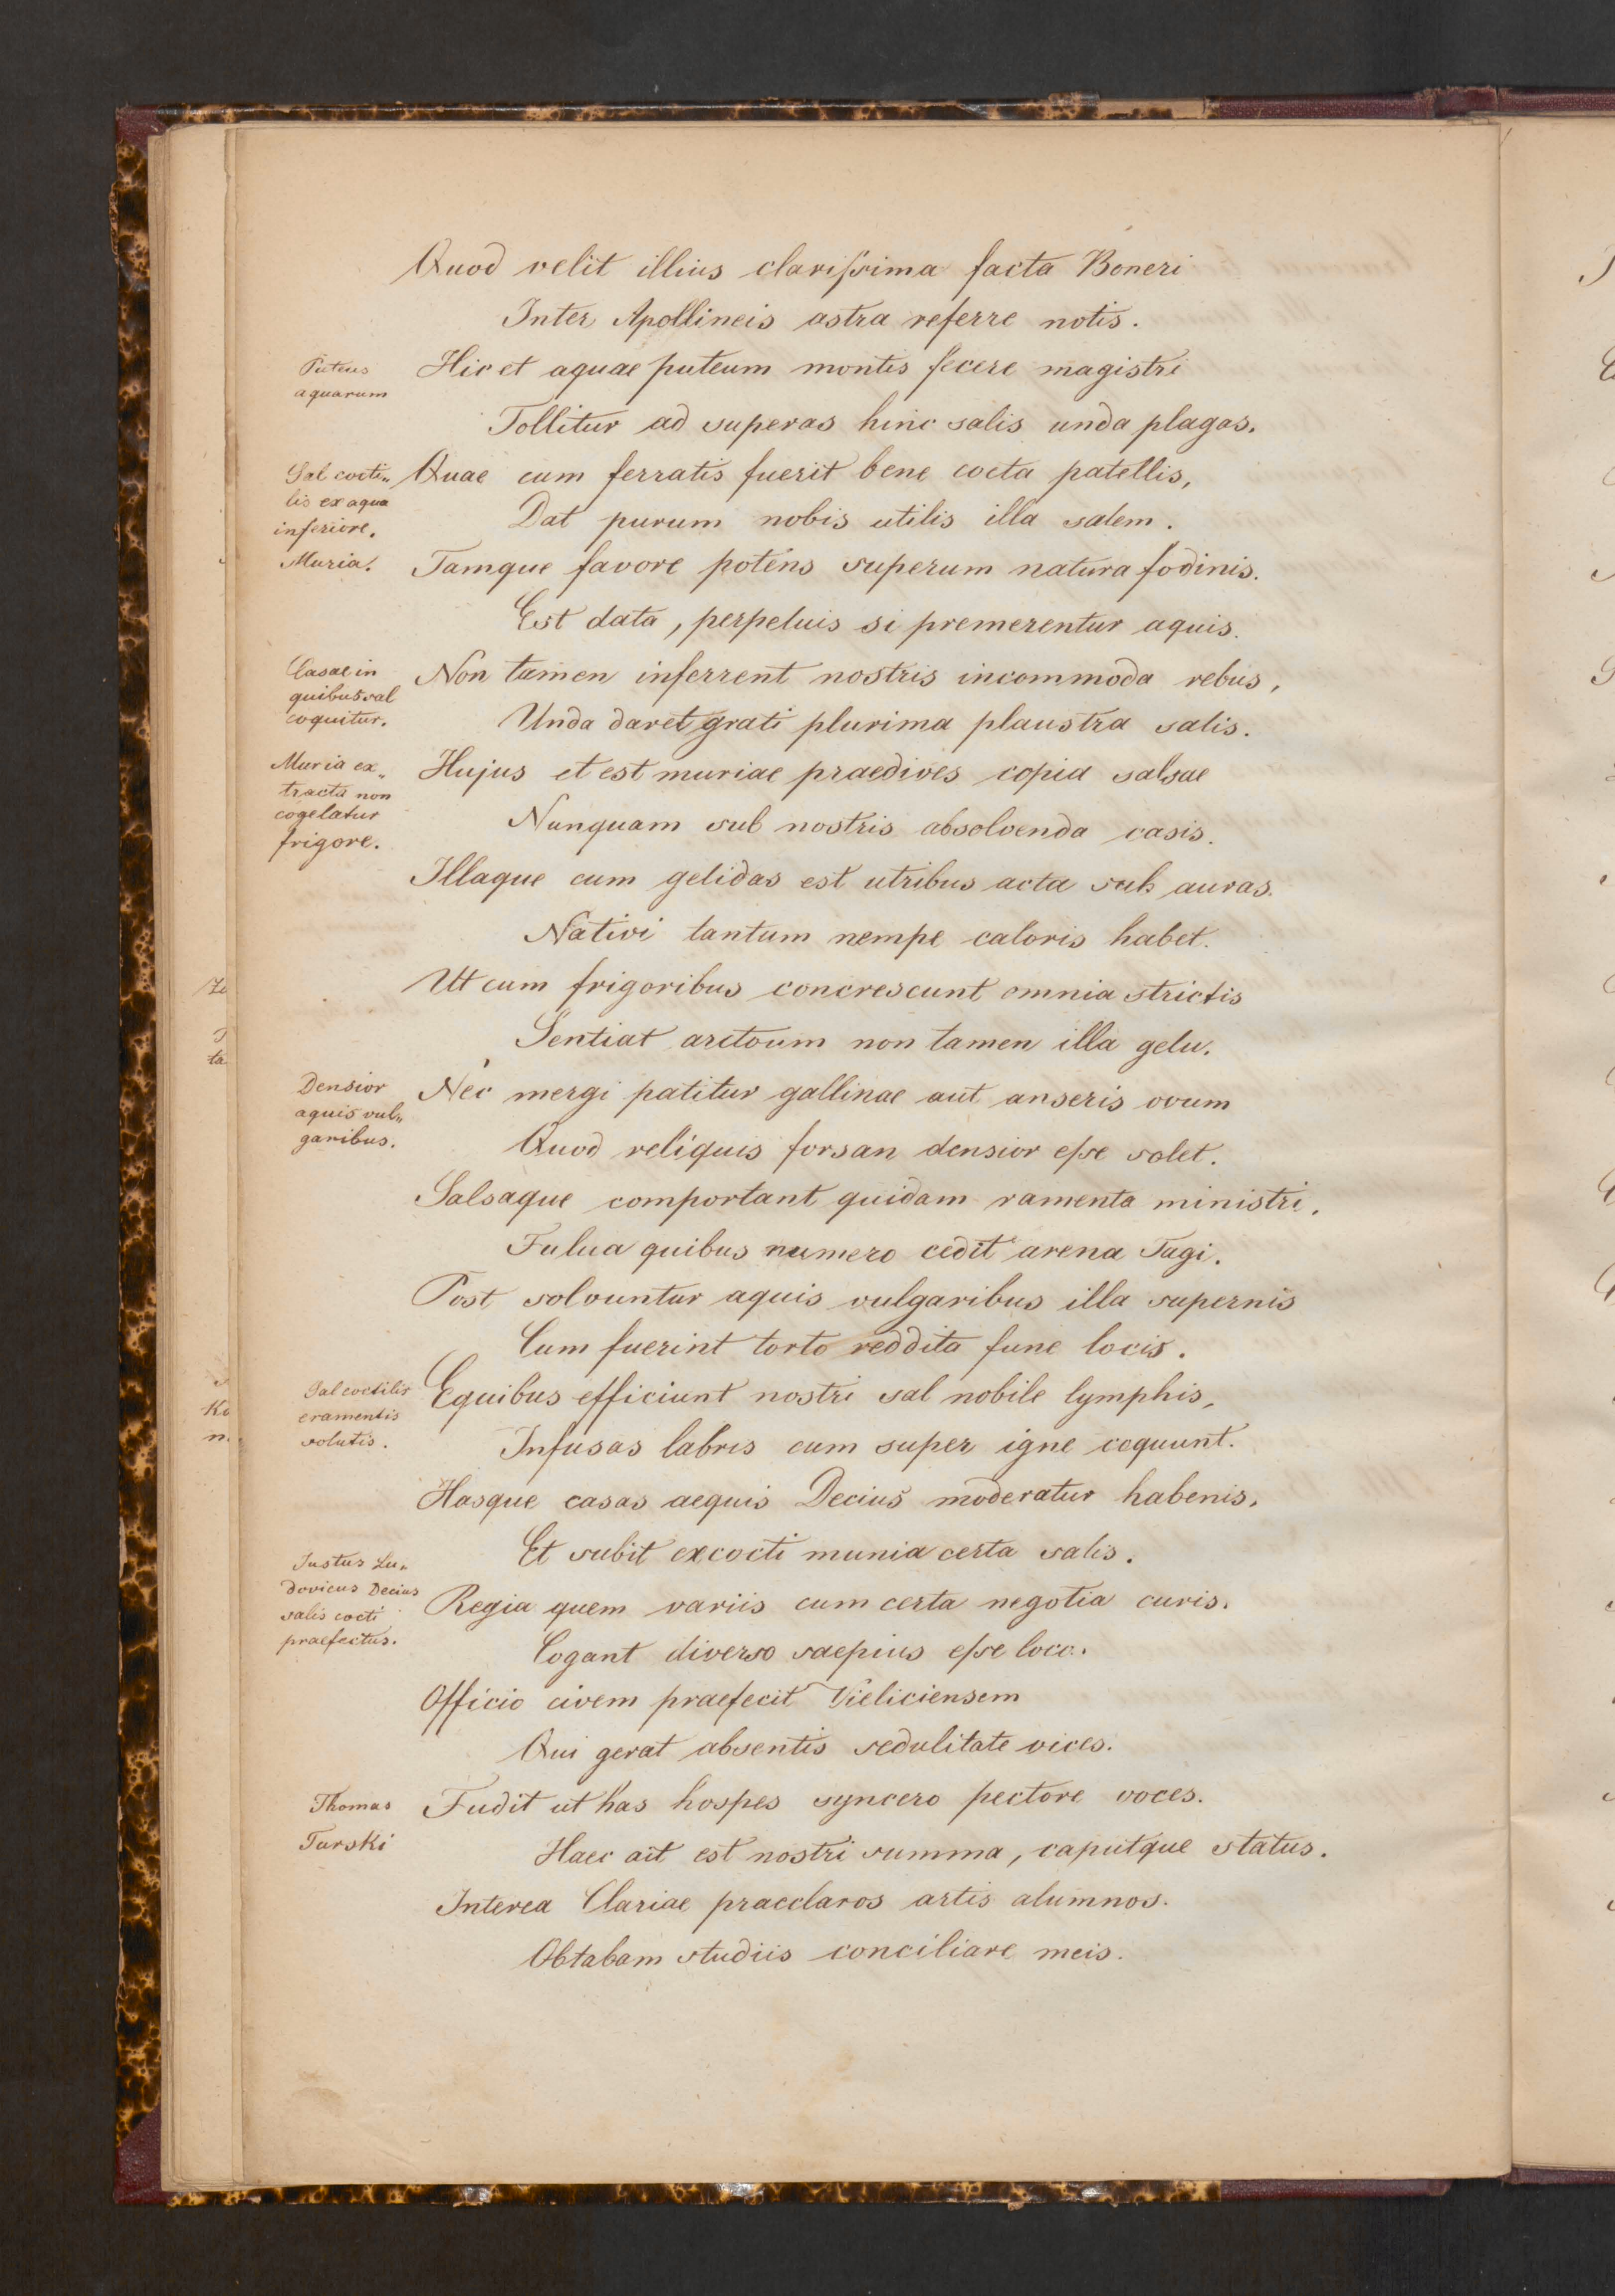 Quod velit illius clarissima facta Boneri
Inter Apollineis astra referre notis.
Puteus
aquarum
Hic et aquae puteum montis fecere magistri
Tollitur ad superas hinc salis unda plagas.
Sal cocti„
lis ex aqua
inferiore.
Quae cum ferratis fuerit bene cocta patellis,
Dat purum nobis utilis illa salem.
Muria.
Tamque favore potens superum natura fodinis.
Est data, perpetuis si premerentur aquis.
Casae in
quibus sal
coquitur.
Non tamen inferrent nostris incommoda rebus,
Unda daret grati plurima plaustra salis.
Muria ex„
tracta non
cogelatur
frigore.
Hujus et est muriae praedives copia salsae
Nunquam sub nostris absolvenda casis.
Illaque cum gelidas est utribus acta sub auras.
Nativi tantum nempe caloris habet.
Ut cum frigoribus concrescunt omnia strictis
Sentiat arctoum non tamen illa gelu.
Densior
aquis vul„
garibus.
Nec mergi patitur gallinae aut anseris ovum
Quod reliquis forsan densior esse solet.
Salsaque comportant quidam ramenta ministri,
Fulua quibus numero cedit arena Tagi.
Post solvuntur aquis vulgaribus illa supernis
Cum fuerint torto reddita fune locis.
Sal coctilis
eramentis
solutis.
Equibus efficiunt nostri sal nobile lymphis,
Infusas labris cum super igne coquunt.
Hasque casas aequis Decius moderatur habenis,
Et subit excocti munia certa salis.
Justus Lu„
dovicus Decius
salis cocti
praefectus.
Regia quem variis cum certa negotia curis.
Cogant diverso saepius esse loco.
Officio civem praefecit Vieliciensem
Qui gerat absentis sedulitate vices.
Thomas
Turski
Fudit ut has hospes syncero pectore voces.
Haec ait est nostri summa, caputque status.
Interea Clariae praeclaros artis alumnos.
Obtabam studiis conciliare meis.